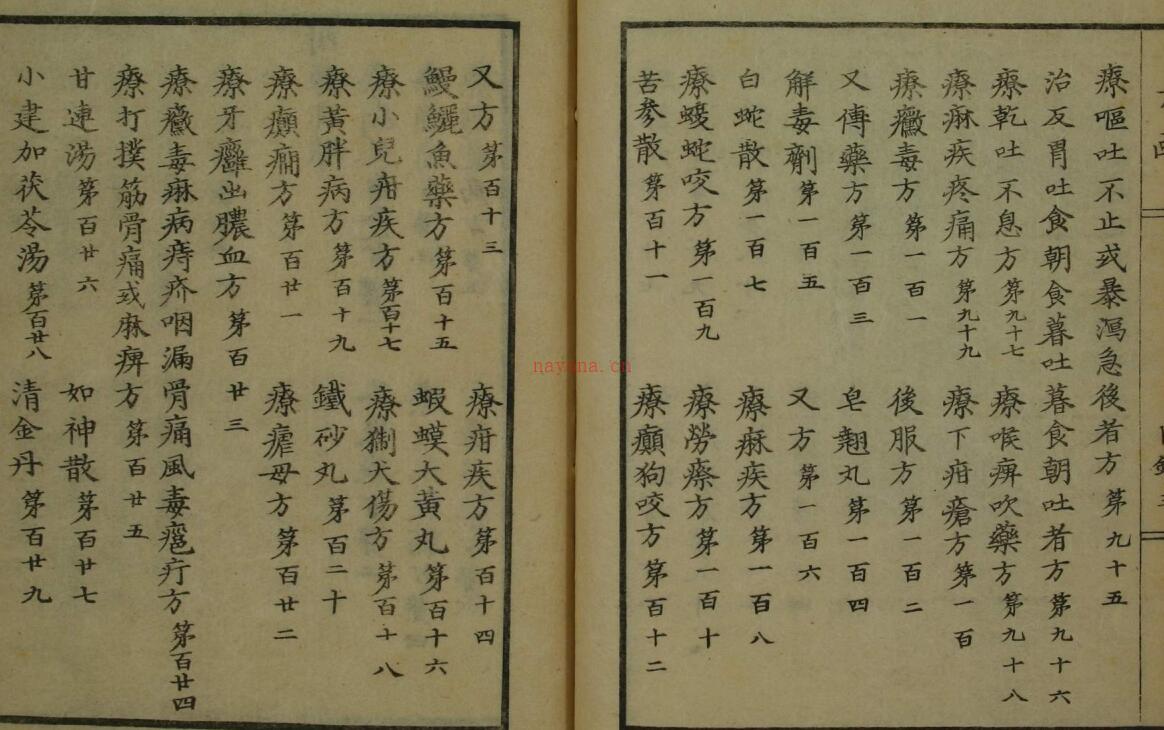 療嘔吐不止或暴瀉急後者方 第九十五
治反胃吐食朝食暮吐暮食朝吐者方 第九十六
療乾吐不息方 第九十七 療喉痹吹藥方 第九十八
療痳疾疼痛方 第九十九 療下疳瘡方 第一百
療黴毒方 第一百一 後服方 第一百二
又傳藥方 第一百三 皂翹丸 第一百四
解毒劑 第一百五 又方 第一百六
白蛇散 第一百七 療痳疾方 第一百八
療蝮蛇咬方 第一百九 療勞瘵方 第一百十
苦參散 第百十一 療癲狗咬方 第百十二
又方 第百十三 療疳疾方 第百十四
鰻鱺魚藥方 第百十五 蝦蟆大黃丸 第百十六
療小兒疳疾方 第百十七 療猘犬傷方 第百十八
療黃胖病方 第百十九 鐵砂丸 第百二十
療癲癇方 第百廿一 療瘧母方 第百廿二
療牙癰出膿血方 第百廿三
療黴毒痳病痔疥咽漏骨痛風毒瘢疔方 第百廿四
療打撲筋骨痛或麻痹方 第百廿五
甘連湯 第百廿六 如神散 第百廿七
小建加茯苓湯 第百廿八 清金丹 第百廿九
nayona.cn